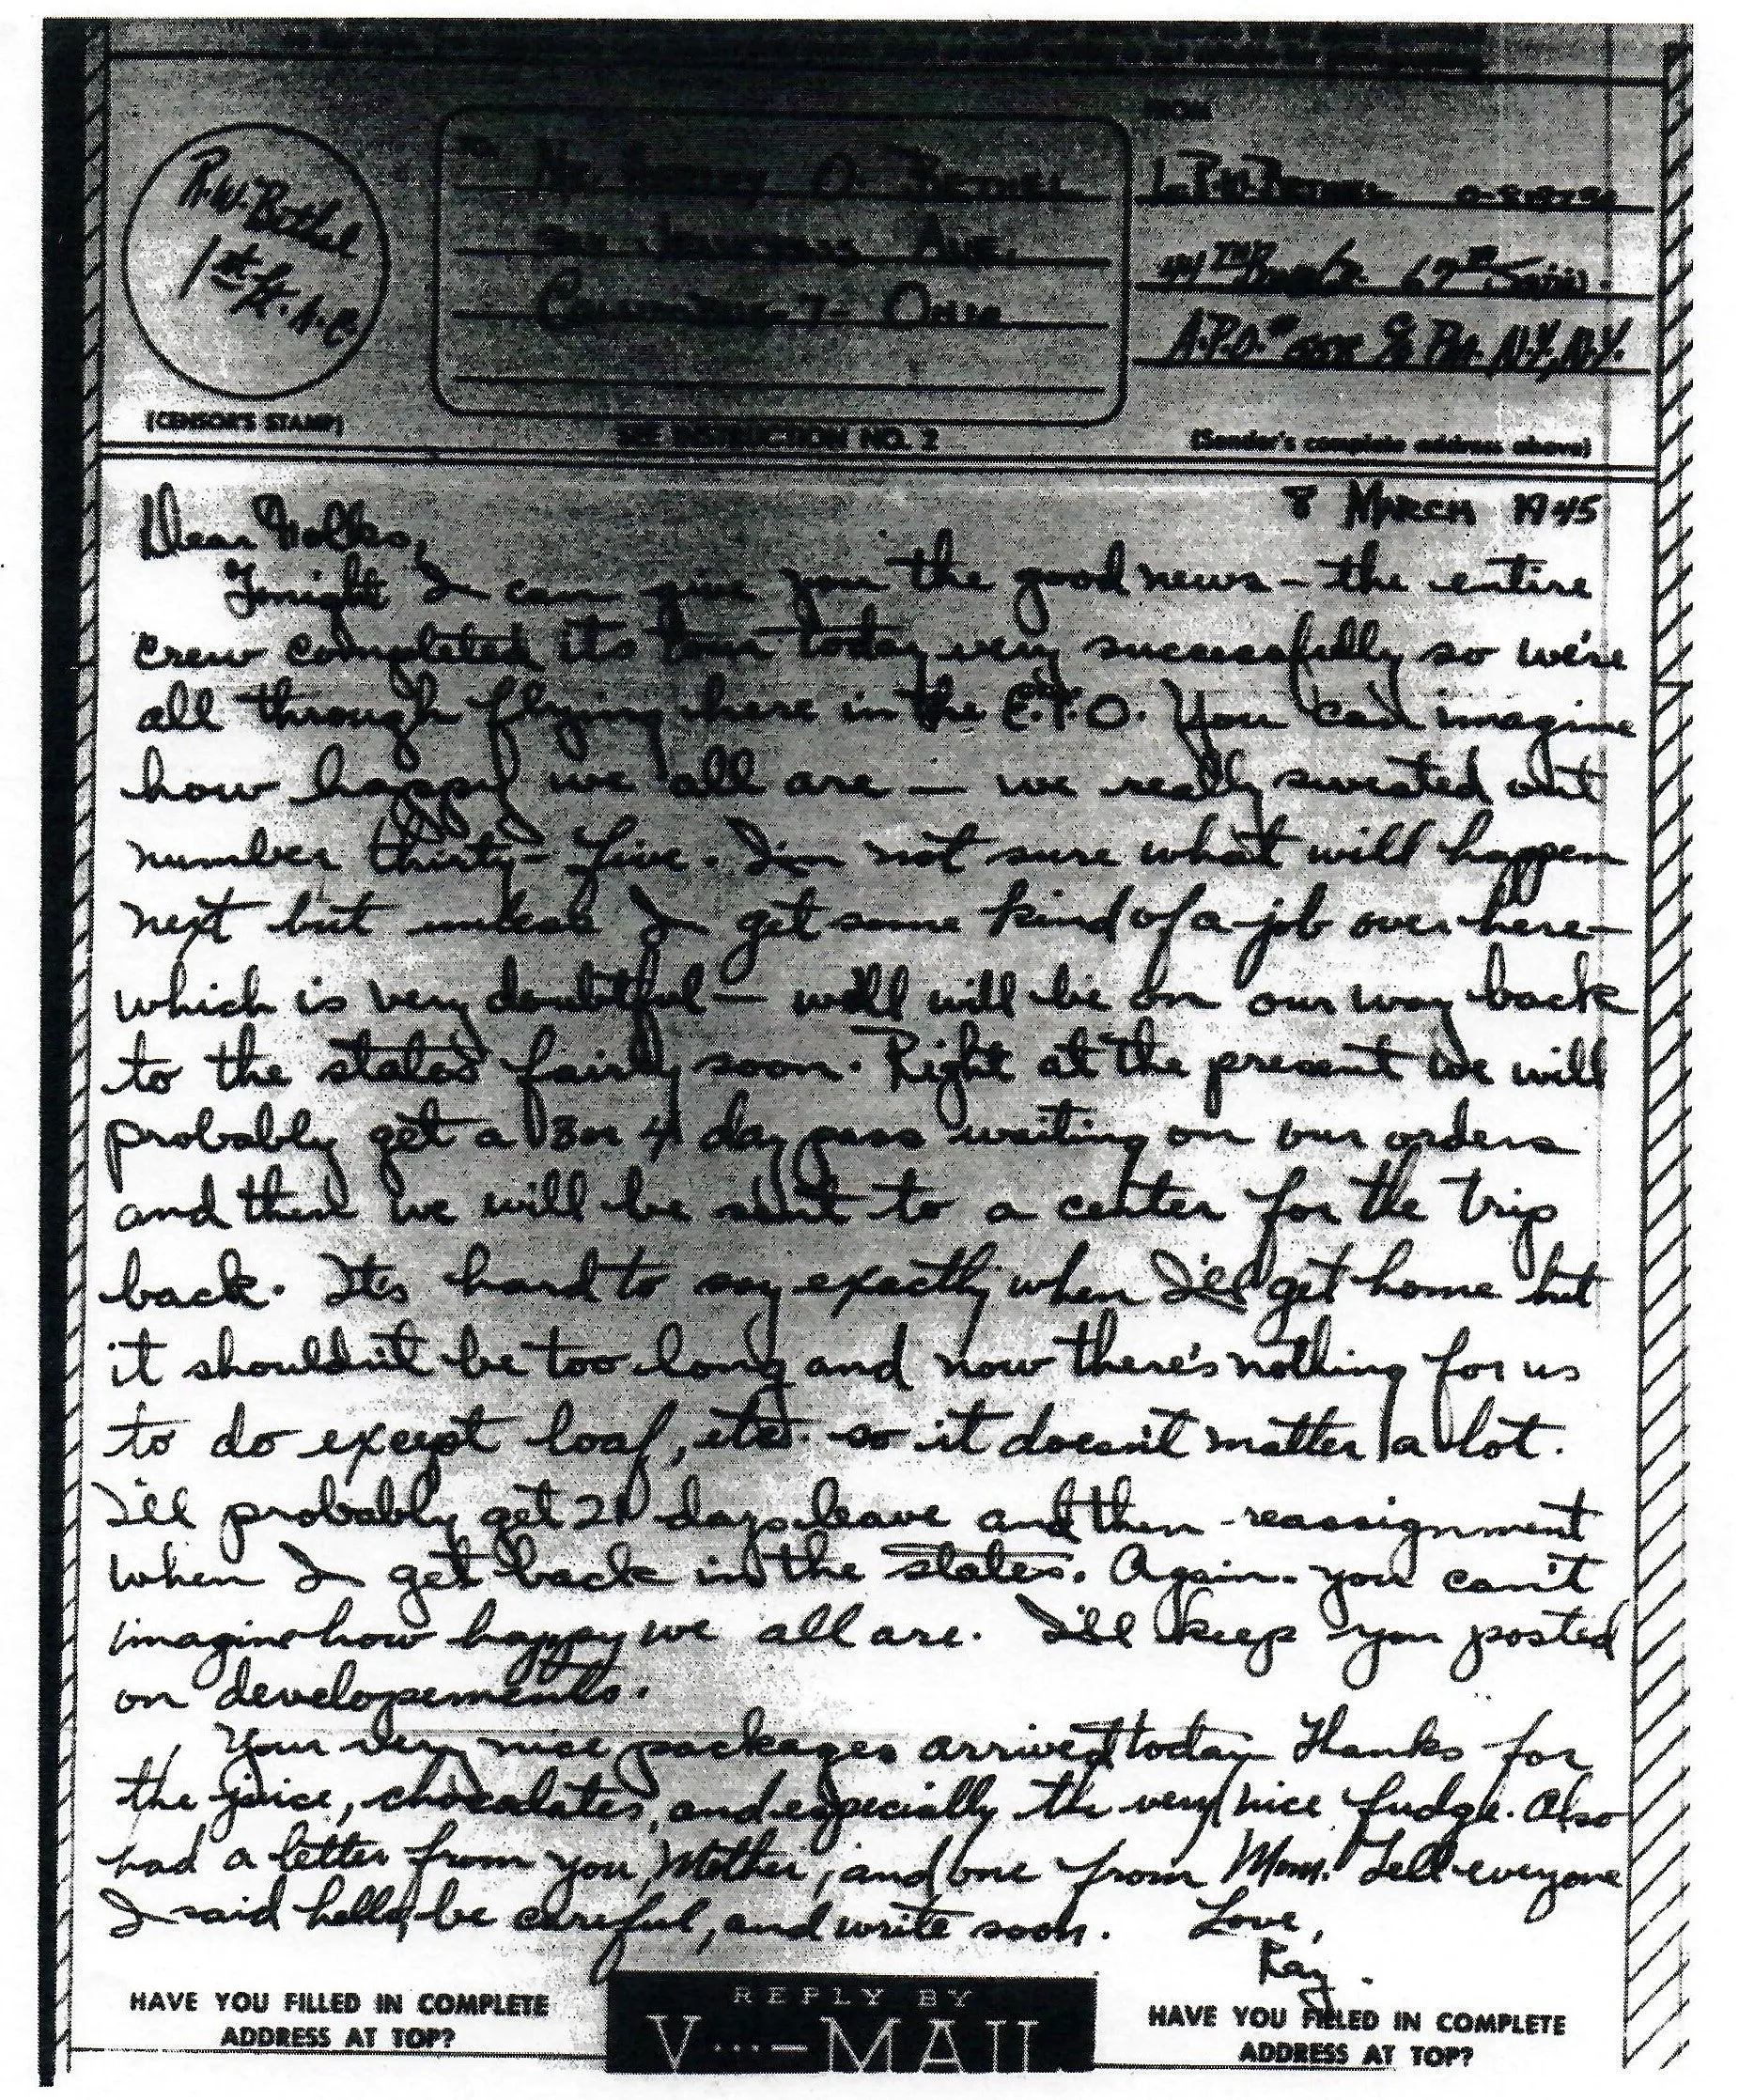 R.W. Bethel
1st Lt. A.C.
(CENSOR'S STAMP)
TO
Mr. O. Bethel
Ave.
Columbus - 7 - Ohio
SEE INSTRUCTION NO. 2
FROM
Lt. R.W. Bethel
44th Bomb Gr. 67th Sqdn.
A.P.O. # c/o P.M. N.Y., N.Y.
(Sender's complete address above)
8 March 1945
Dear Folks,
Tonight I can give you the good news - the entire
crew completed its tour today very successfully so we're
all through flying here in the E.T.O. You can imagine
how happy we all are — we really sweated out
number thirty-five. I'm not sure what will happen
next but unless I get some kind of a job over here -
which is very doubtful — we'll will be on our way back
to the states fairly soon. Right at the present we will
probably get a 3 or 4 day pass waiting on our orders
and then we will be sent to a center for the trip
back. It's hard to say exactly when I'll get home but
it shouldn't be too long and now there's nothing for us
to do except loaf, etc. so it doesn't matter a lot.
I'll probably get 21 days leave and then reassignment
when I get back in the states. Again. you can't
imagine how happy we all are. I'll keep you posted
on developements.
Your very nice packages arrived today. Thanks for
the juice, chocolates, and especially the very nice fudge. Also
had a letter from you, Mother, and one from Mom. Tell everyone
I said hello, be careful, and write soon. Love,
Ray.
HAVE YOU FILLED IN COMPLETE
ADDRESS AT TOP?
REPLY BY
V···—MAIL
HAVE YOU FILLED IN COMPLETE
ADDRESS AT TOP?